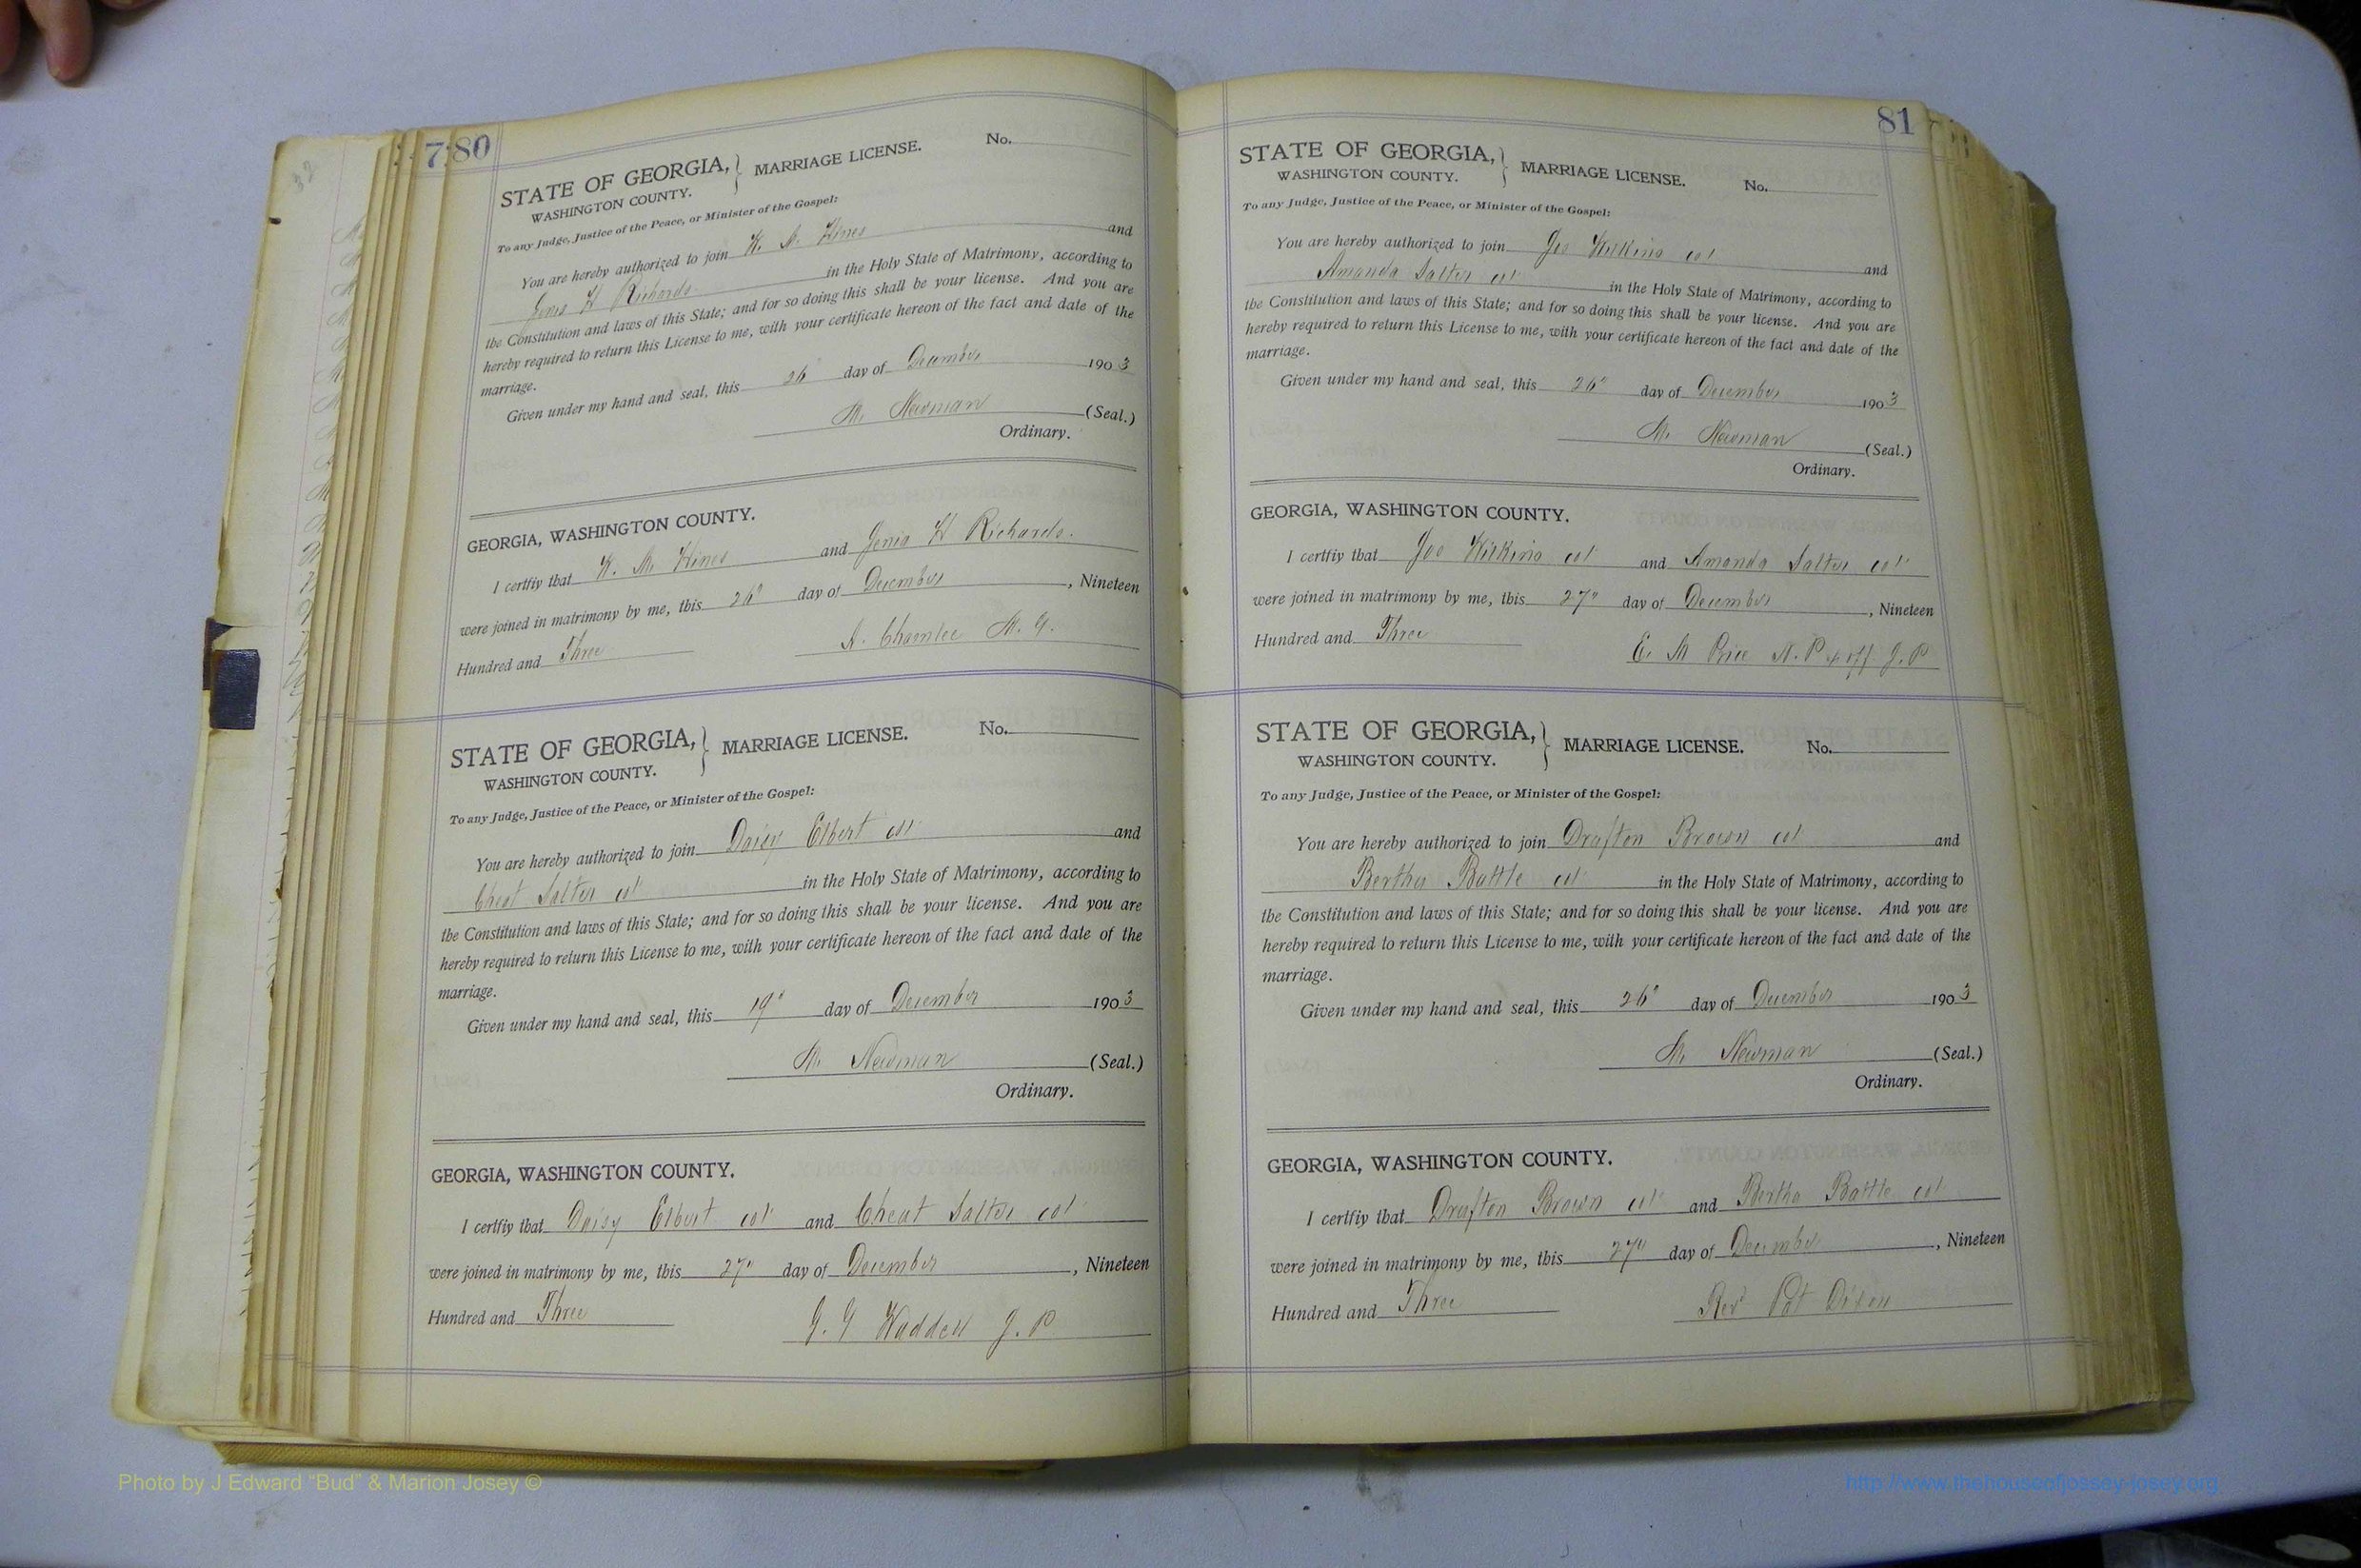 80
STATE OF GEORGIA, } MARRIAGE LICENSE. No.
WASHINGTON COUNTY.
To any Judge, Justice of the Peace, or Minister of the Gospel:
You are hereby authorized to join W. M. Hines and
Genia H Richards in the Holy State of Matrimony, according to
the Constitution and laws of this State; and for so doing this shall be your license. And you are
hereby required to return this License to me, with your certificate hereon of the fact and date of the
marriage.
Given under my hand and seal, this 26 day of December 1903
M. Newman (Seal.)
Ordinary.
GEORGIA, WASHINGTON COUNTY.
I certfiy that W. M. Hines and Genia H Richards.
were joined in matrimony by me, this 26" day of December, Nineteen
Hundred and Three
M. G.
STATE OF GEORGIA, } MARRIAGE LICENSE. No.
WASHINGTON COUNTY.
To any Judge, Justice of the Peace, or Minister of the Gospel:
You are hereby authorized to join Daisy Elbert col and
Cheat Salter col in the Holy State of Matrimony, according to
the Constitution and laws of this State; and for so doing this shall be your license. And you are
hereby required to return this License to me, with your certificate hereon of the fact and date of the
marriage.
Given under my hand and seal, this 19" day of December 1903
M. Newman (Seal.)
Ordinary.
GEORGIA, WASHINGTON COUNTY.
I certfiy that Daisy Elbert col and Cheat Salter col
were joined in matrimony by me, this 27" day of December, Nineteen
Hundred and Three
G. G Waddell J. P.
81
STATE OF GEORGIA, } MARRIAGE LICENSE. No.
WASHINGTON COUNTY.
To any Judge, Justice of the Peace, or Minister of the Gospel:
You are hereby authorized to join Joe Wilkins col and
Amanda Salter col in the Holy State of Matrimony, according to
the Constitution and laws of this State; and for so doing this shall be your license. And you are
hereby required to return this License to me, with your certificate hereon of the fact and date of the
marriage.
Given under my hand and seal, this 26" day of December 1903
M. Newman (Seal.)
Ordinary.
GEORGIA, WASHINGTON COUNTY.
I certfiy that Joe Wilkins col and Amanda Salter col
were joined in matrimony by me, this 27" day of December, Nineteen
Hundred and Three
E. M Price N. P & off J. P
STATE OF GEORGIA, } MARRIAGE LICENSE. No.
WASHINGTON COUNTY.
To any Judge, Justice of the Peace, or Minister of the Gospel:
You are hereby authorized to join Drafton Brown col and
Bertha Battle col in the Holy State of Matrimony, according to
the Constitution and laws of this State; and for so doing this shall be your license. And you are
hereby required to return this License to me, with your certificate hereon of the fact and date of the
marriage.
Given under my hand and seal, this 26" day of December 1903
M. Newman (Seal.)
Ordinary.
GEORGIA, WASHINGTON COUNTY.
I certfiy that Drafton Brown col and Bertha Battle col
were joined in matrimony by me, this 27" day of December, Nineteen
Hundred and Three
Rev Pat Dixon
Photo by J Edward “Bud” & Marion Josey ©
http://www.thehouseofjossey-josey.org